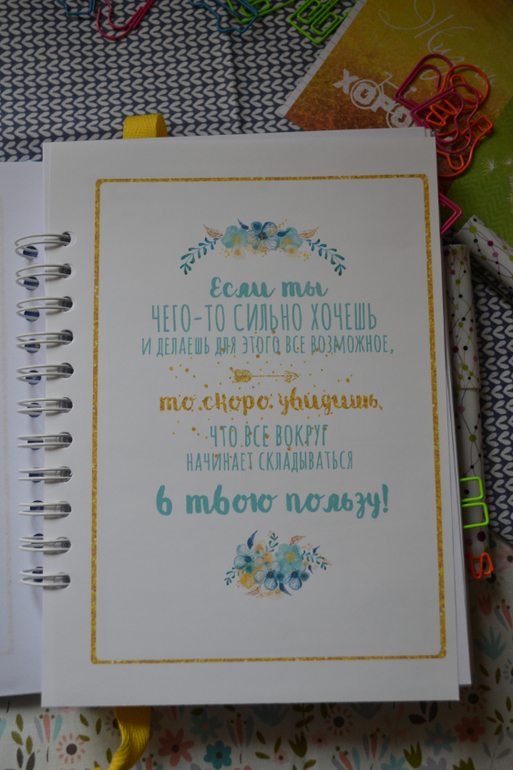 ХОРО
Если ты
ЧЕГО-ТО СИЛЬНО ХОЧЕШЬ
И ДЕЛАЕШЬ ДЛЯ ЭТОГО ВСЕ ВОЗМОЖНОЕ,
то скоро увидишь,
ЧТО ВСЕ ВОКРУГ
НАЧИНАЕТ СКЛАДЫВАТЬСЯ
в твою пользу!